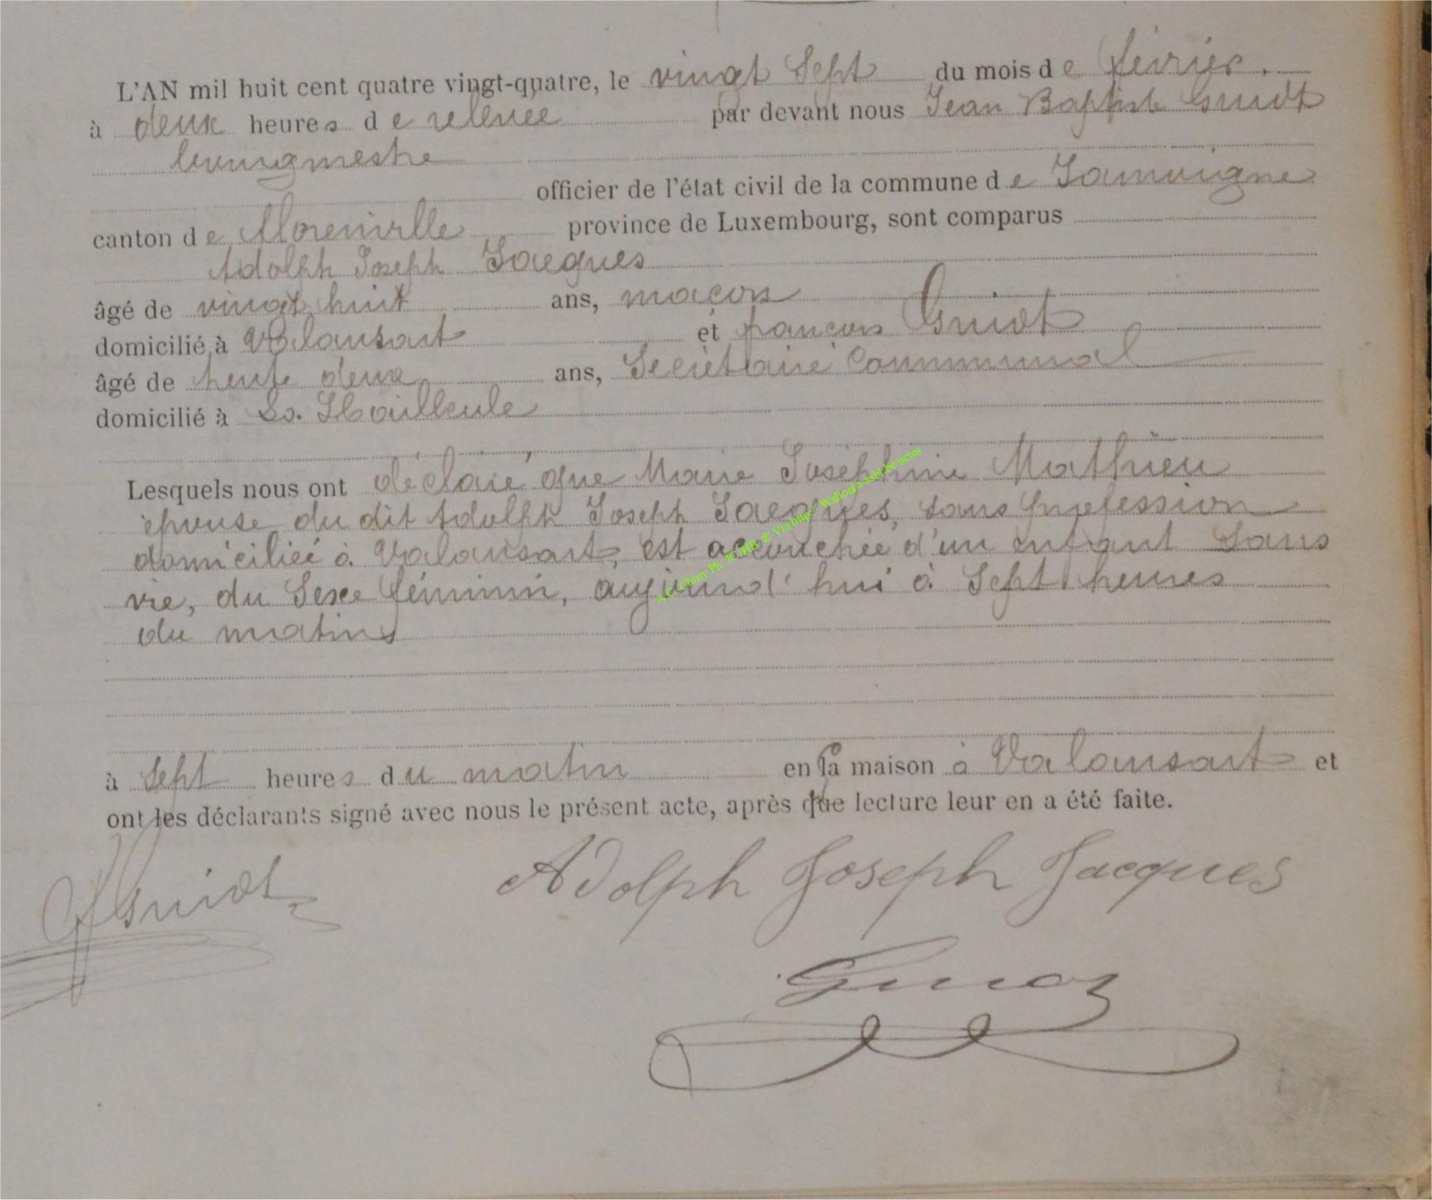 L'AN mil huit cent quatre vingt-quatre, le vingt sept du mois de février.
à deux heures de relevée par devant nous Jean Baptiste Guiot
bourgmestre
officier de l'état civil de la commune de Jamoigne
canton de Florenville province de Luxembourg, sont comparus
Adolph Joseph Jacques
âgé de vingt huit ans, maçon
domicilié à Valansart et françois Guiot
âgé de trente deux ans, Secrétaire Communal
domicilié à La Hailleule
Lesquels nous ont déclaré que Marie Joséphine Mathieu
épouse du dit Adolph Joseph Jacques, sans profession
domiciliée à Valansart, est accouchée d'un enfant sans
vie, du Sexe féminin, aujourd'hui à Sept heures
du matin
à sept heures du matin en sa maison à Valansart et
ont les déclarants signé avec nous le présent acte, après que lecture leur en a été faite.
Guiot Adolph Joseph Jacques
Guiot